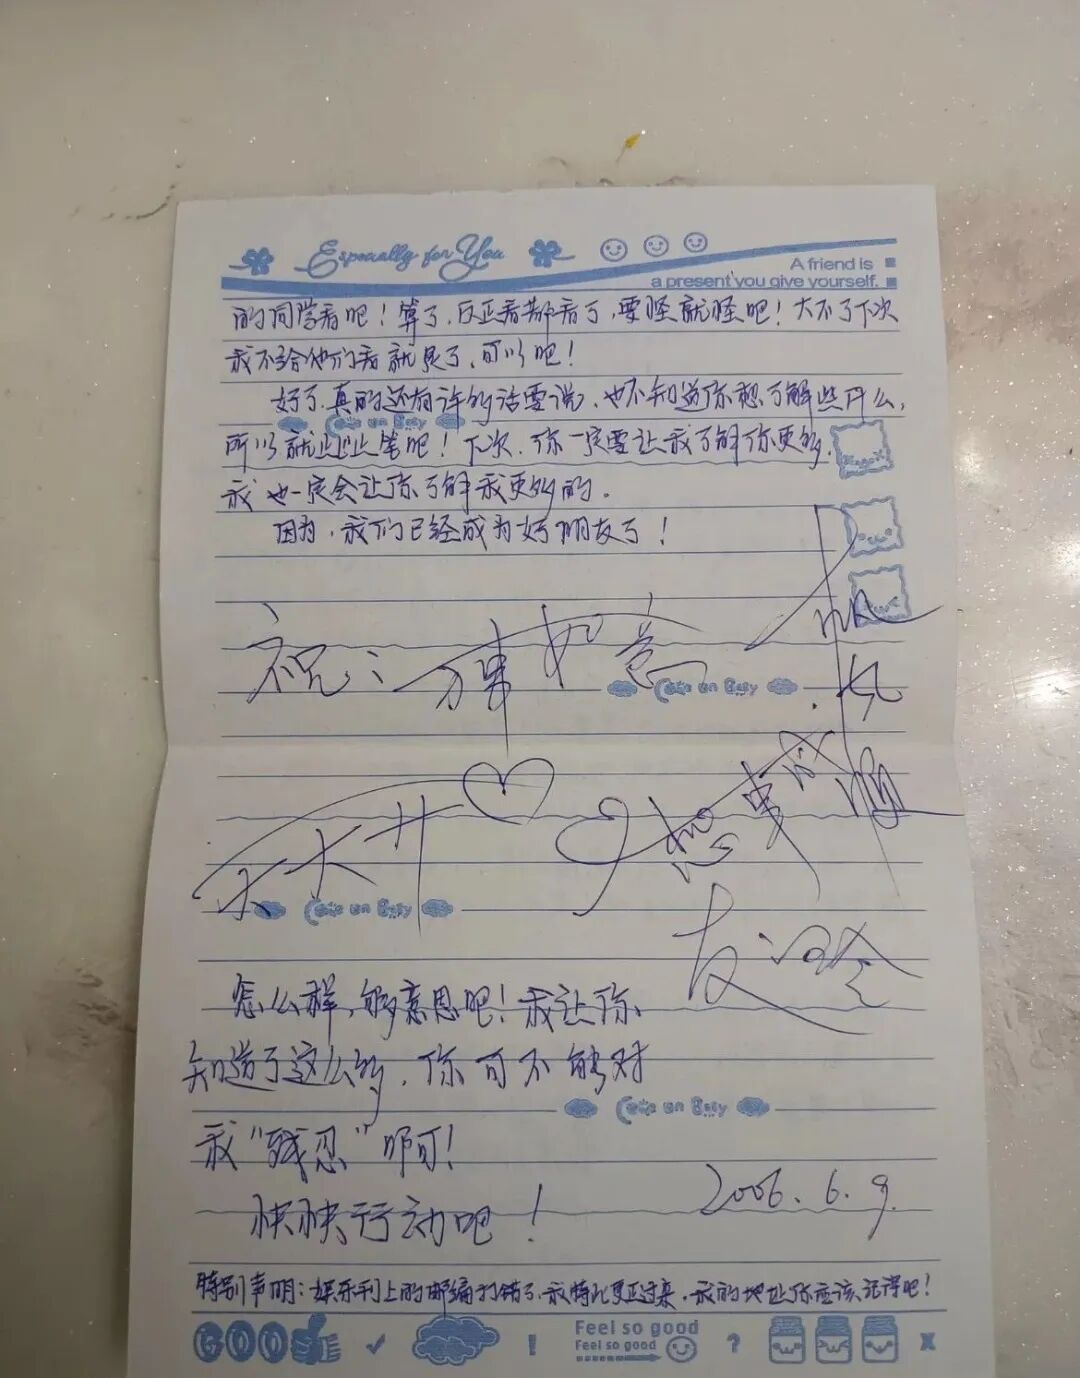 Especially for You
A friend is
a present you give yourself.
的同学看吧！算了，反正看都看了，要怪就怪吧！大不了下次
我不给他们看就是了，可以吧！
好了，真的还有许多话要说，也不知道你想了解些什么，
所以就此止笔吧！下次，你一定要让我了解你更多，
我也一定会让你了解我更多的。
因为，我们已经成为好朋友了！
祝：万事如意
天天开心
心想事成
友：
怎么样，够意思吧！我让你
知道了这么多，你可不能对
我“残忍”啊！
快快行动吧！
2006.6.9
特别声明：娱乐刊上的邮编打错了，我特此更正过来，我的地址你应该记得吧！
GOOD
!
Feel so good
Feel so good
?
X